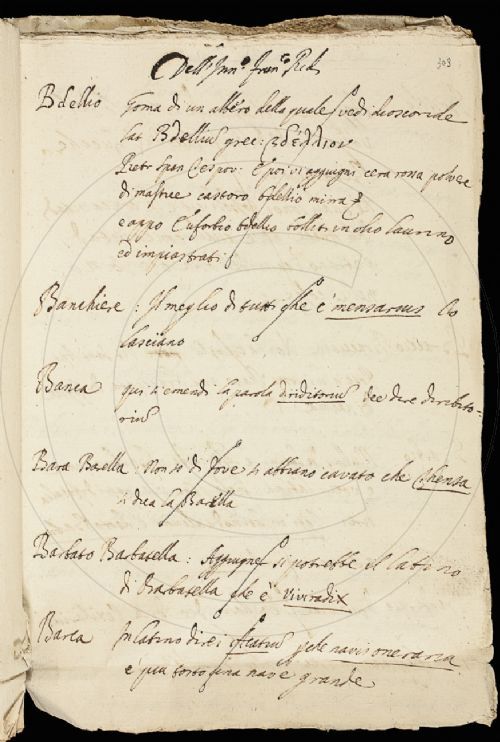 303
Dell' Ill.mo Fran.co Redi
Bdellio Goma di un albero della quale vedi dioscoride
lat Bdelliū grec: βδέλλιον
Pietr Span Tespov: E poi vi aggiugni cera rossa polvere
di mastice castoro bdellio mirra
e appo l'uforbio bdellio bolliti in olio laurino
ed impiastrati
Banchiere : Il meglio di tutti che è mensarius lo
lasciano
Banca qui si emendi la parola diriditoriū dee dire diribito-
riū
Bara Barella : Non sò di dove si abbiano cavato che Thensa
si dica la Barella
Barbato Barbatella : Aggiugner si potrebbe il latino
di Barbatella che è viviradix
Barca In latino direi che navis oneraria
è piu tosto una nave grande